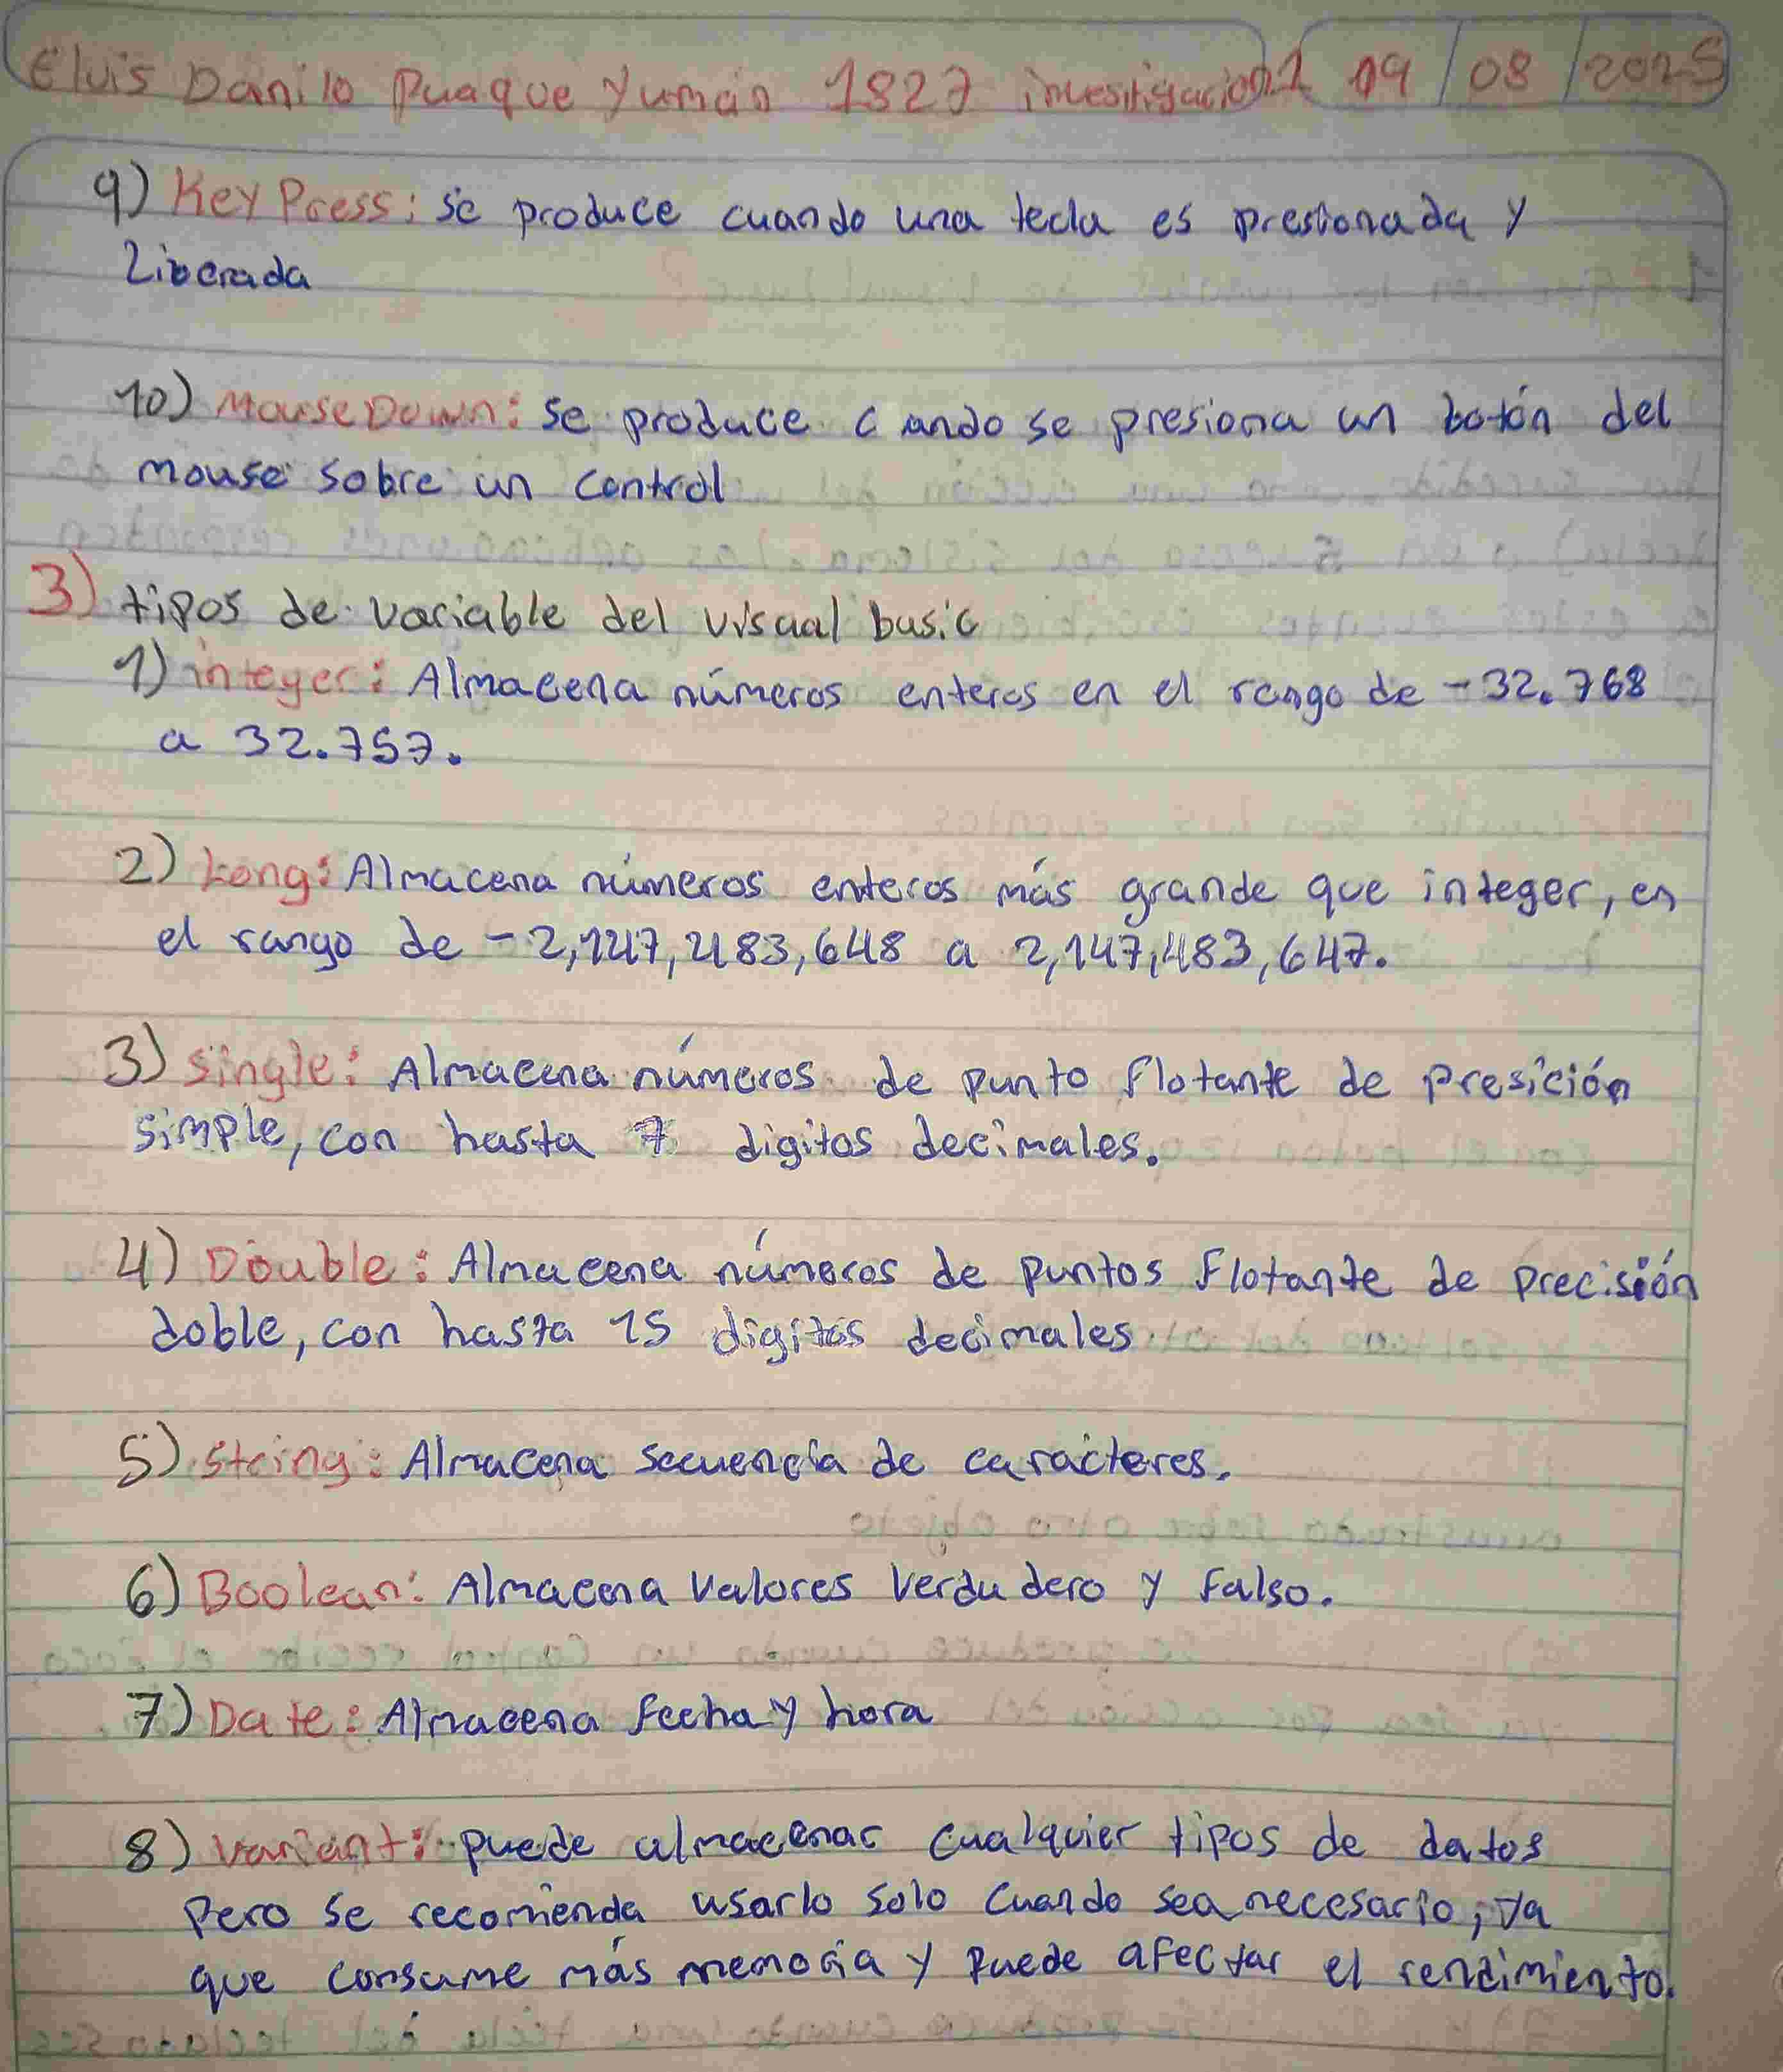 Eluis Danilo Puaque Yumán 1827 investigación 1 19/08/2025
9) Key Press: se produce cuando una tecla es presionada y
Liberada
10) MouseDown: se produce c ando se presiona un botón del
mouse sobre un control
3) tipos de variable del visual basic
1) integer: Almacena números enteros en el rango de -32.768
a 32.757.
2) Long: Almacena números enteros más grande que integer, en
el rango de -2,147,483,648 a 2,147,483,647.
3) Single: Almacena números de punto flotante de presición
simple, con hasta 7 digitos decimales.
4) Double: Almacena números de puntos Flotante de precisión
doble, con hasta 15 digitos decimales
5) String: Almacena secuencia de carácteres.
6) Boolean: Almacena valores Verdadero y Falso.
7) Date: Almacena fecha y hora
8) variant: puede almacenar cualquier tipos de datos
Pero se recomienda usarlo solo cuando sea necesario; ya
que consume más memoria y puede afectar el rendimiento.